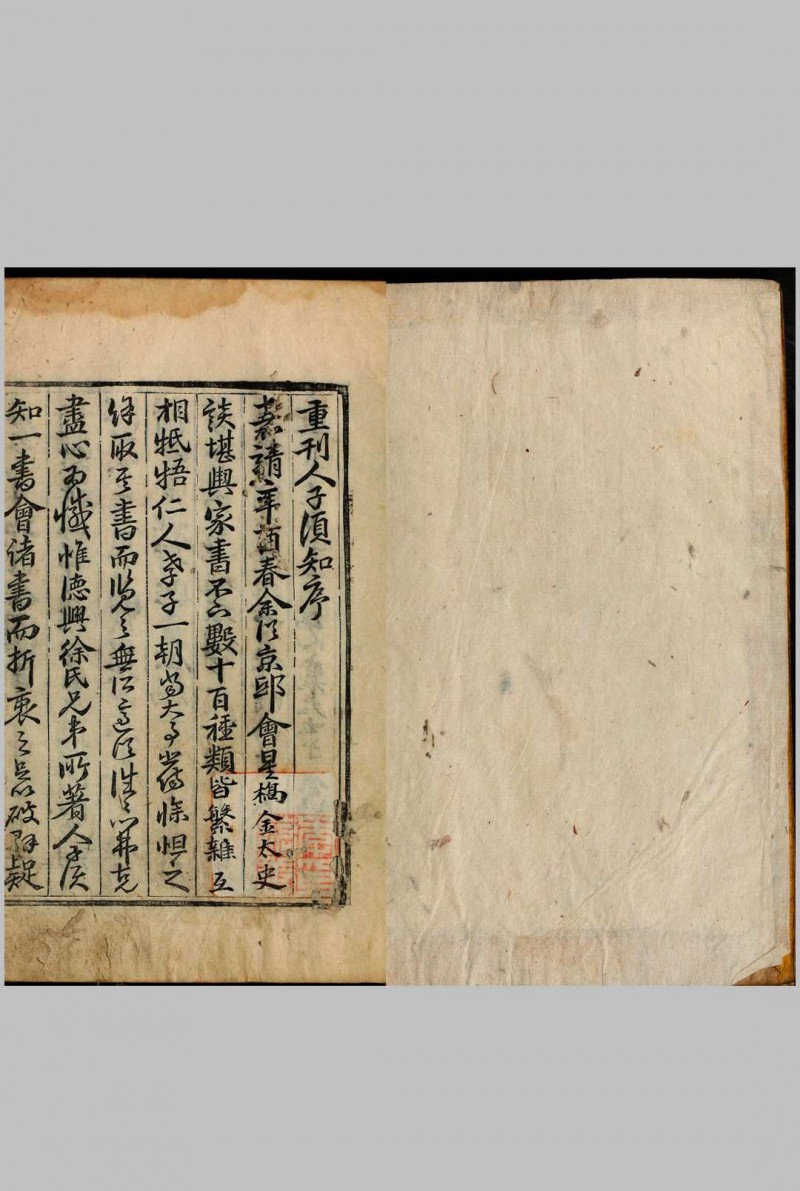 重刊人子須知序
嘉靖辛酉春余以京邸會星橋金太史
談堪輿家書不下數十百種類皆繁雜互
相牴牾仁人孝子一朝當大事當惨怛之
餘取其書而覽之無所適從往往弗克
盡心而憾惟德興徐氏兄弟所著人子須
知一書會諸書而折衷之足以破群疑